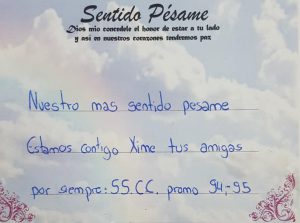 Sentido Pésame
Dios mio concedele el honor de estar a tu lado
y asi en nuestros corazones tendremos paz
Nuestro mas sentido pesame
Estamos contigo Xime tus amigas
por siempre: SS.CC. promo 94,-95